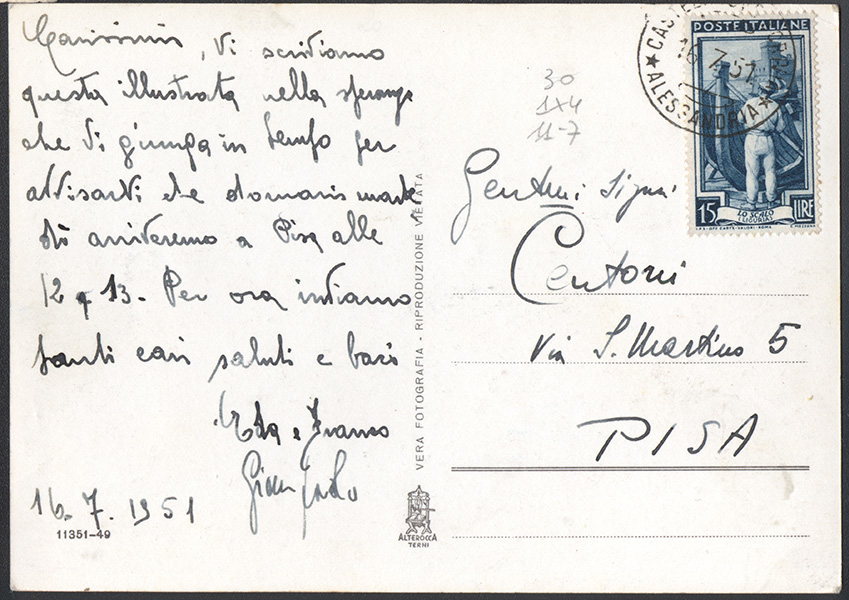 Carissimi, Vi scriviamo
questa illustrata nella speranza
che Vi giunga in tempo per
avvisarVi che domani marte
dì arriveremo a Pisa alle
12 e 13. Per ora inviamo
tanti cari saluti e baci
Eda e Franco
Gian Paolo
16. 7. 1951
11351-49
VERA FOTOGRAFIA - RIPRODUZIONE VIETATA
ALTEROCCA
TERNI
30
1x4
11-7
POSTE ITALIANE
15 LIRE
LO SCALO
(LIGURIA)
I.P.S. OFF. CARTE-VALORI - ROMA
C. MEZZANA
16.7.51
ALESSANDRIA
Gentmi Signri
Centoni
Via S. Martino 5
PISA